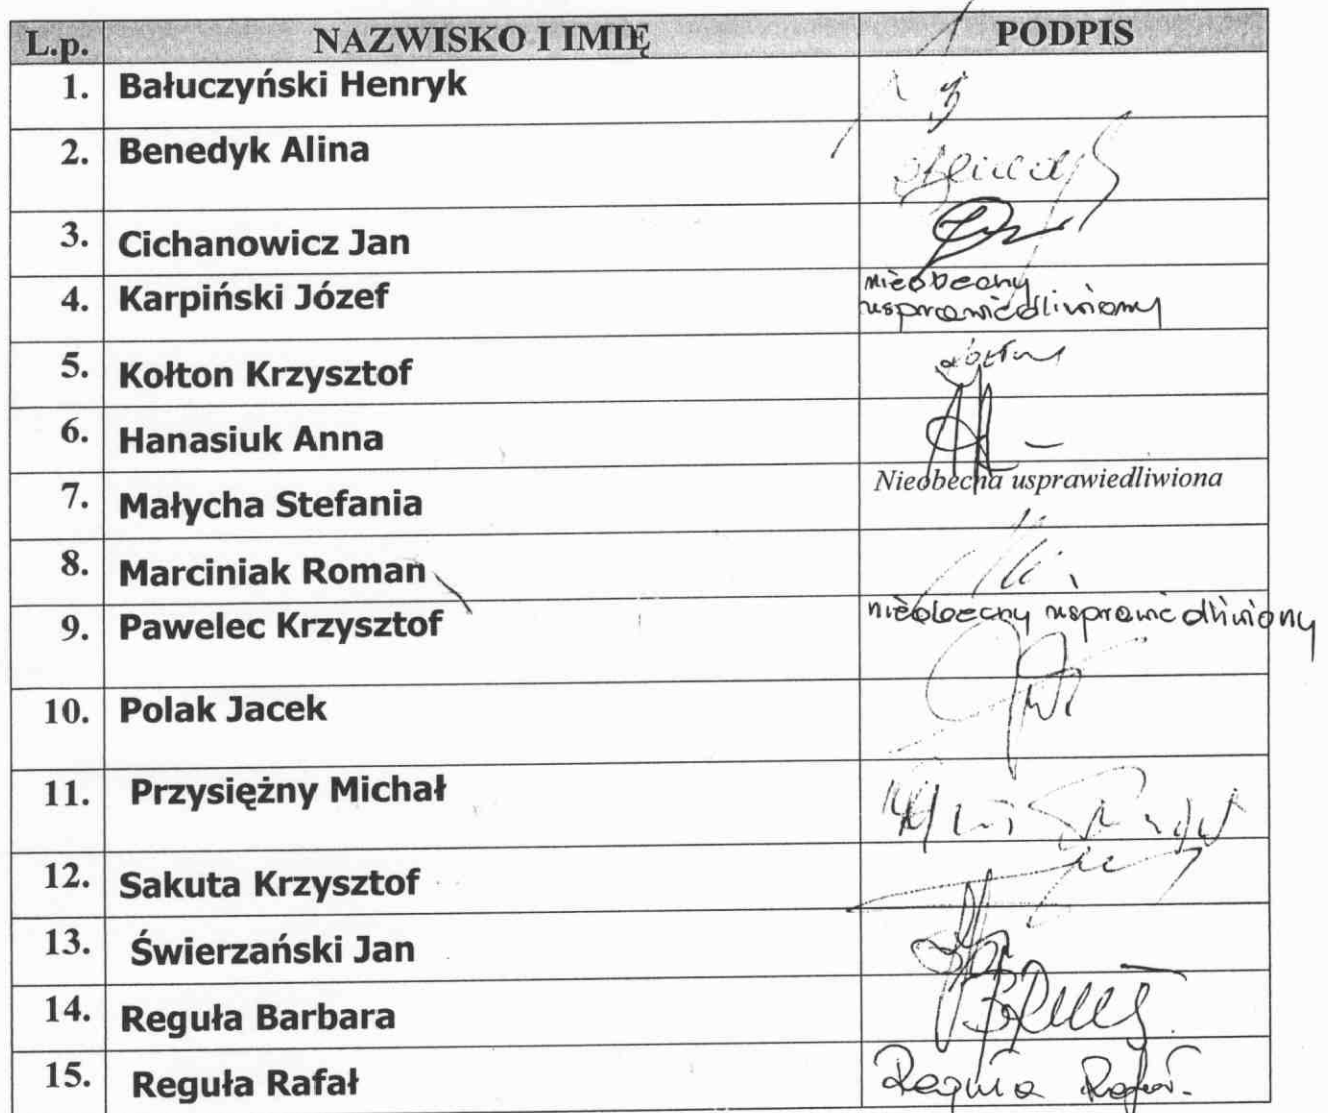 L.p. NAZWISKO I IMIĘ PODPIS
1. Bałuczyński Henryk
2. Benedyk Alina
3. Cichanowicz Jan
4. Karpiński Józef nieobecny
usprawiedliwiony
5. Kołton Krzysztof
6. Hanasiuk Anna
7. Małycha Stefania Nieobecna usprawiedliwiona
8. Marciniak Roman
9. Pawelec Krzysztof nieobecny usprawiedliwiony
10. Polak Jacek
11. Przysiężny Michał
12. Sakuta Krzysztof
13. Świerzański Jan
14. Reguła Barbara
15. Reguła Rafał Reguła Rafał